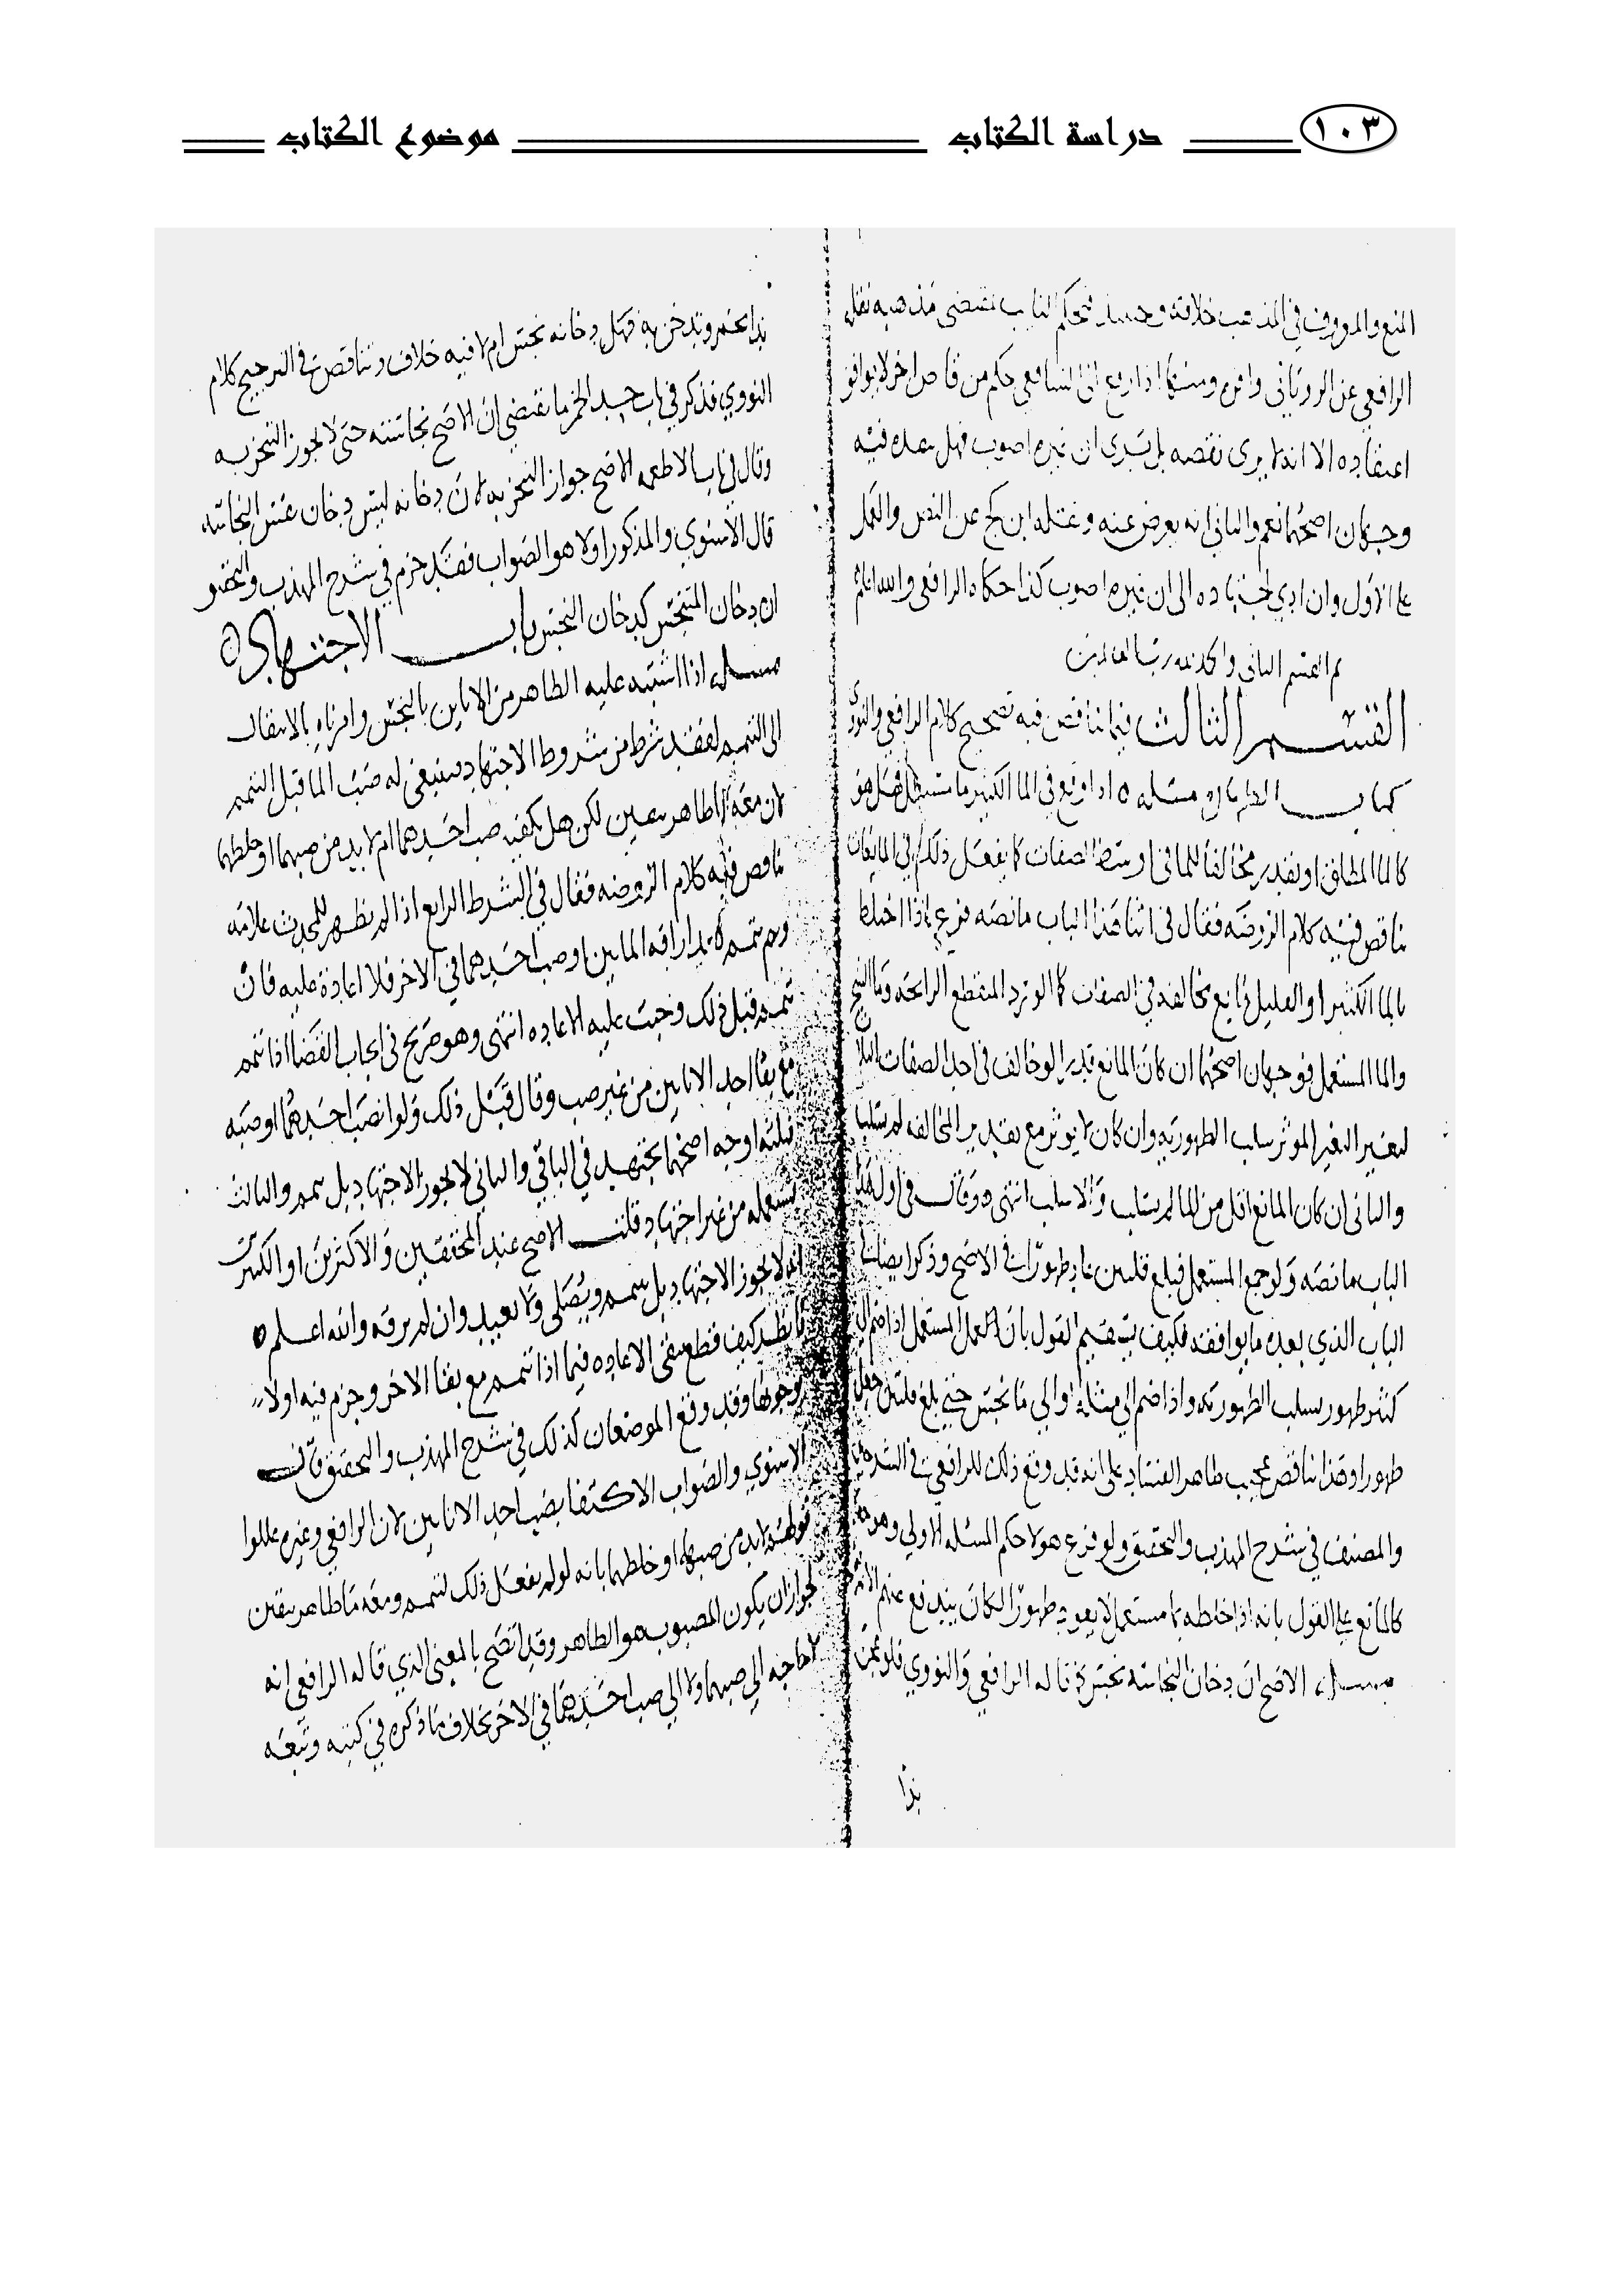 ١٠٣ دراسة الكتاب موضوع الكتاب
المنع والمعروف في المذهب خلافه وحينئذ فحكم النايب بمقتضى مذهبه نقله
الرافعي عن الروياني واقره ومنها اذا رفع الى الشافعي حكم من قاض اخر لا يوافق
اعتقاده الا انه لا يرى نقضه بل يرى ان غيره اصوب فهل ينفذه فيه
وجهان اصحهما نعم والثاني انه يعرض عنه ونقله ابن كج عن النص والعمل
على الاول وان ادي اجتهاده الى ان غيره اصوب كذا حكاه الرافعي والله اعلم
تم القسم الثاني والحمد لله رب العالمين
القسم الثالث فيما تناقض فيه تصحيح كلام الرافعي والنووي
كتاب الطهارة مسئله اذا وقع في الما الكثير ما مستعمل فهل هو
كالما المطلق او يقدر مخالفا للما في اوسط الصفات كما يفعل ذلك في المايعات
تناقض فيه كلام الروضه فقال في اثنا هذا الباب ما نصه فرع اذا اختلط
بالما الكثير او القليل مايع يخالفه في الصفات كما الورد المنقطع الرايحه وما الشجر
والما المستعمل فوجهان اصحهما ان كان المايع قدرا لو خالف في احد الصفات الثلاث
لتغير التغير الموثر سلب الطهوريه وان كان لا يوثر مع تقدير المخالفه لم يسلبها
والثاني ان كان المايع اقل من الما لم يسلب والا سلب انتهى وقال في اول هذا
الباب ما نصه ولو جمع المستعمل فبلغ قلتين عاد طهورا في الاصح وذكر ايضا في
الباب الذي بعده ما يوافقه فكيف يستقيم القول بان المستعمل اذا ضم الى
كثير طهور يسلب الطهوريه واذا ضم الي مثله او الي ما نجس حتي بلغ قلتين جعل
طهورا وهذا تناقض عجيب ظاهر الفساد على انه قد وقع ذلك للرافعي في الشرحين
والمصنف في شرح المهذب والتحقيق ولو فرع هولا حكم المسئله الاولي وهو
كالمايع علي القول بانه اذا خلطه بما مستعمل لا يعود طهورا لكان يندفع عنهم
مسئله الاصح ان دخان النجاسه نجس قاله الرافعي والنووي فلو عجن
ندا
ندا بخمر وتدخن به فهل دخانه نجس ام لا فيه خلاف وتناقض في الترجيح كلام
النووي فذكر في باب حد الخمر ما يقتضي ان الاصح نجاسته حتى لا يجوز التبخر به
وقال في باب الاطعمه الاصح جواز التبخر به لان دخانه ليس دخان نفس النجاسه
قال الاسنوي والمذكور اولا هو الصواب فقد جزم في شرح المهذب والتحقيق
ان دخان المتنجس كدخان النجس باب الاجتهاد
مسئله اذا اشتبه عليه الطاهر من الاناين بالنجس وامرناه بالانتقال
الى التيمم لفقد شرط من شروط الاجتهاد فينبغي له صب الما قبل التيمم
لان معه ما طاهر بيقين لكن هل يكفيه صب احدهما ام لا بد من صبهما او خلطهما
تناقض فيه كلام الروضه فقال في الشرط الرابع اذا لم يظهر للمجتهد علامه
وتيمم بعد اراقه الماين او صب احدهما في الاخر فلا اعاده عليه فان
تيمم قبل ذلك وجبت عليه الاعاده انتهى وهو صريح في ايجاب القضا اذا تيمم
مع بقا احد الاناين من غير صب وقال قبل ذلك ولو انصب احدهما او صبه
فثلثه اوجه اصحها يجتهد في الباقي والثاني لا يجوز الاجتهاد بل يتيمم والثالث
يستعمله من غير اجتهاد قلت الاصح عند المحققين والاكثرين او الكثير
انه لا يجوز الاجتهاد بل يتيمم ويصلي ولا يعيد وان لم يرقه والله اعلم
فانظر كيف قطع بنفي الاعاده فيما اذا تيمم مع بقا الاخر وجزم فيه اولا
بوجوبها وقد وقع الموضعان كذلك في شرح المهذب والتحقيق قال
الاسنوي والصواب الاكتفا بصب احد الاناين لان الرافعي وغيره عللوا
قولهم لا بد من صبهما او خلطهما بانه لو لم يفعل ذلك لتيمم ومعه ما طاهر بيقين
لجواز ان يكون المصبوب هو الطاهر وقد اتضح بالمعني الذي قاله الرافعي انه
لا حاجه الي صبهما ولا الي صب احدهما في الاخر بخلاف ما ذكره في كتبه وتبعه